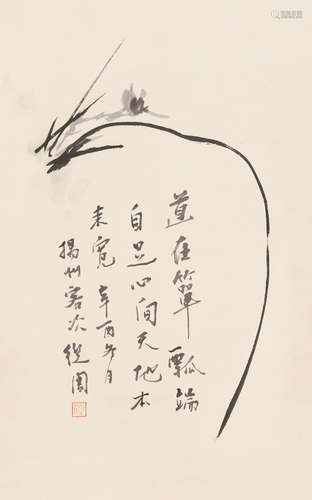 道在箪瓢端
自足心间天地本
来宽 辛酉冬月
扬州客次 从周